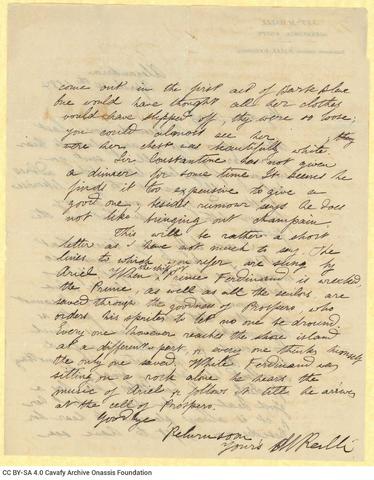 come out in the first act of Dark blue
One would have thought all her clothes
would have slipped off, they were so loose;
you could almost see her , they
were her chest was beautifully white.
Sir Constantine has not given
a dinner for some time. It seems he
finds it too expensive to give a
good one; besids rumour says he does
not like bringing out champain.
This will be rather a short
letter as I have not much to say. The
lines to which you refer, are sung by
Ariel. When the ship of Prince Ferdinand is wrecked,
the Prince, as well as all the sailors, are
saved through the goodness of Prospero, who
orders his sprites to let no one be drownd
Every one however reaches the shore island
at a different part, & every one thinks himself
the only one saved. While Ferdinand was
sitting on a rock alone he hears the
music of Ariel & follows it till he arrives
at the cell of Prospero.
Goodbye
Yours Ralli
CC BY-SA 4.0 Cavafy Archive Onassis Foundation